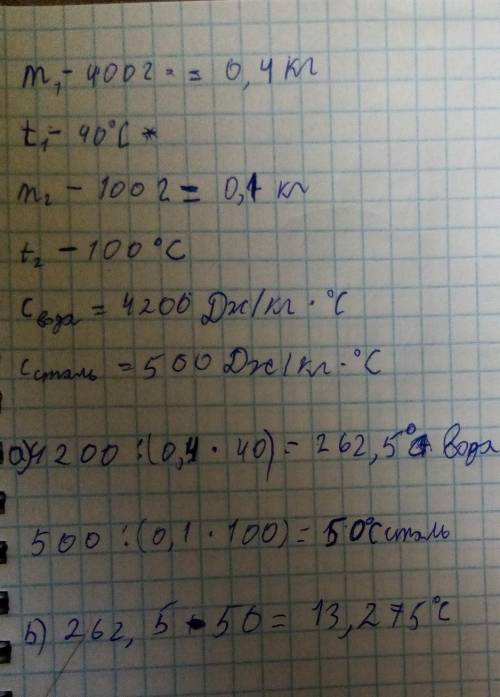 m₁ - 400 г = 0,4 кг
t₁ - 40°C
m₂ - 100 г = 0,1 кг
t₂ - 100°C
Cвода = 4200 Дж/кг·°C
Cсталь = 500 Дж/кг·°C
а) 4200 : (0,4 · 40) = 262,5°C вода
500 : (0,1 · 100) = 50°C сталь
б) 262,5 - 50 = 13,275°C